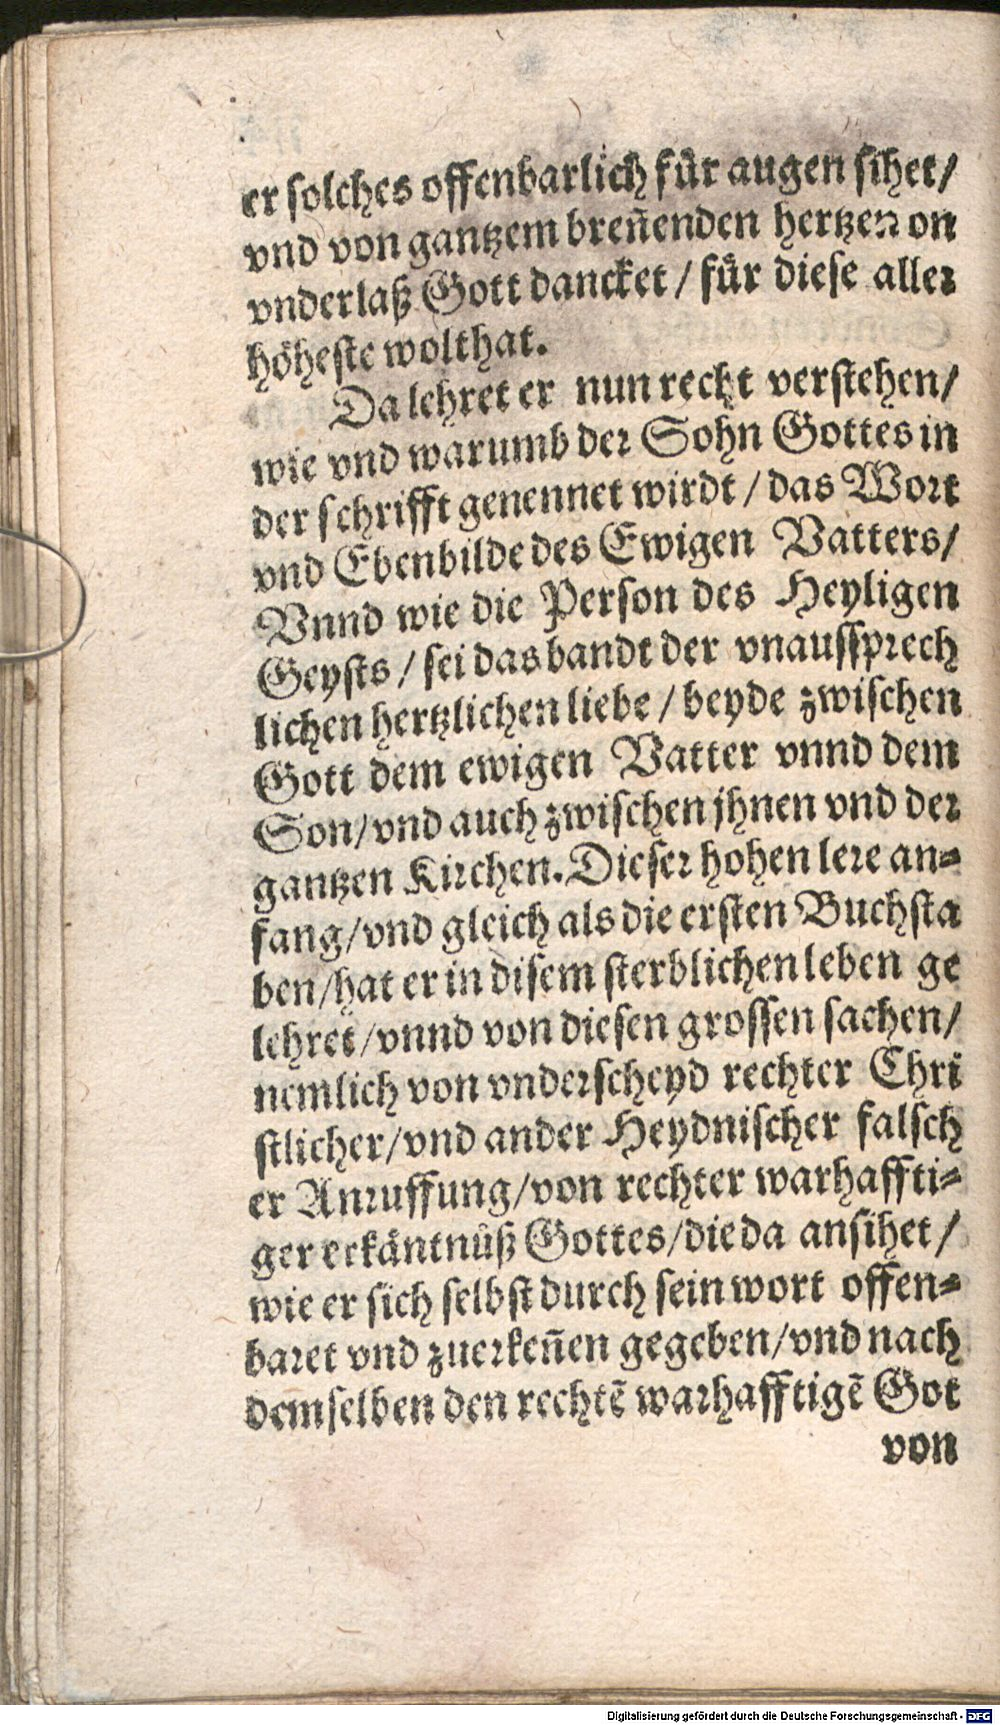 er solches offenbarlich für augen sihet/
vnd von gantzem breñenden hertzen on
vnderlaß Gott dancket / für diese aller
höheste wolthat.
Da lehret er nun recht verstehen/
wie vnd warumb der Sohn Gottes in
der schrifft genennet wirdt / das Wort
vnd Ebenbilde des Ewigen Vatters/
Vnnd wie die Person des Heyligen
Geysts / sei das bandt der vnaussprech
lichen hertzlichen liebe / beyde zwischen
Gott dem ewigen Vatter vnnd dem
Son/vnd auch zwischen jhnen vnd der
gantzen Kirchen. Dieser hohen lere an-
fang/vnd gleich als die ersten Buchsta
ben/hat er in disem sterblichen leben ge
lehret/vnnd von diesen grossen sachen/
nemlich von vnderscheyd rechter Chri
stlicher/vnd ander Heydnischer falsch
er Anruffung/von rechter warhaffti-
ger erkäntnüß Gottes/die da ansihet/
wie er sich selbst durch sein wort offen-
baret vnd zuerkeñen gegeben/vnd nach
demselben den rechtẽ warhafftigẽ Got
von
Digitalisierung gefördert durch die Deutsche Forschungsgemeinschaft - DFG